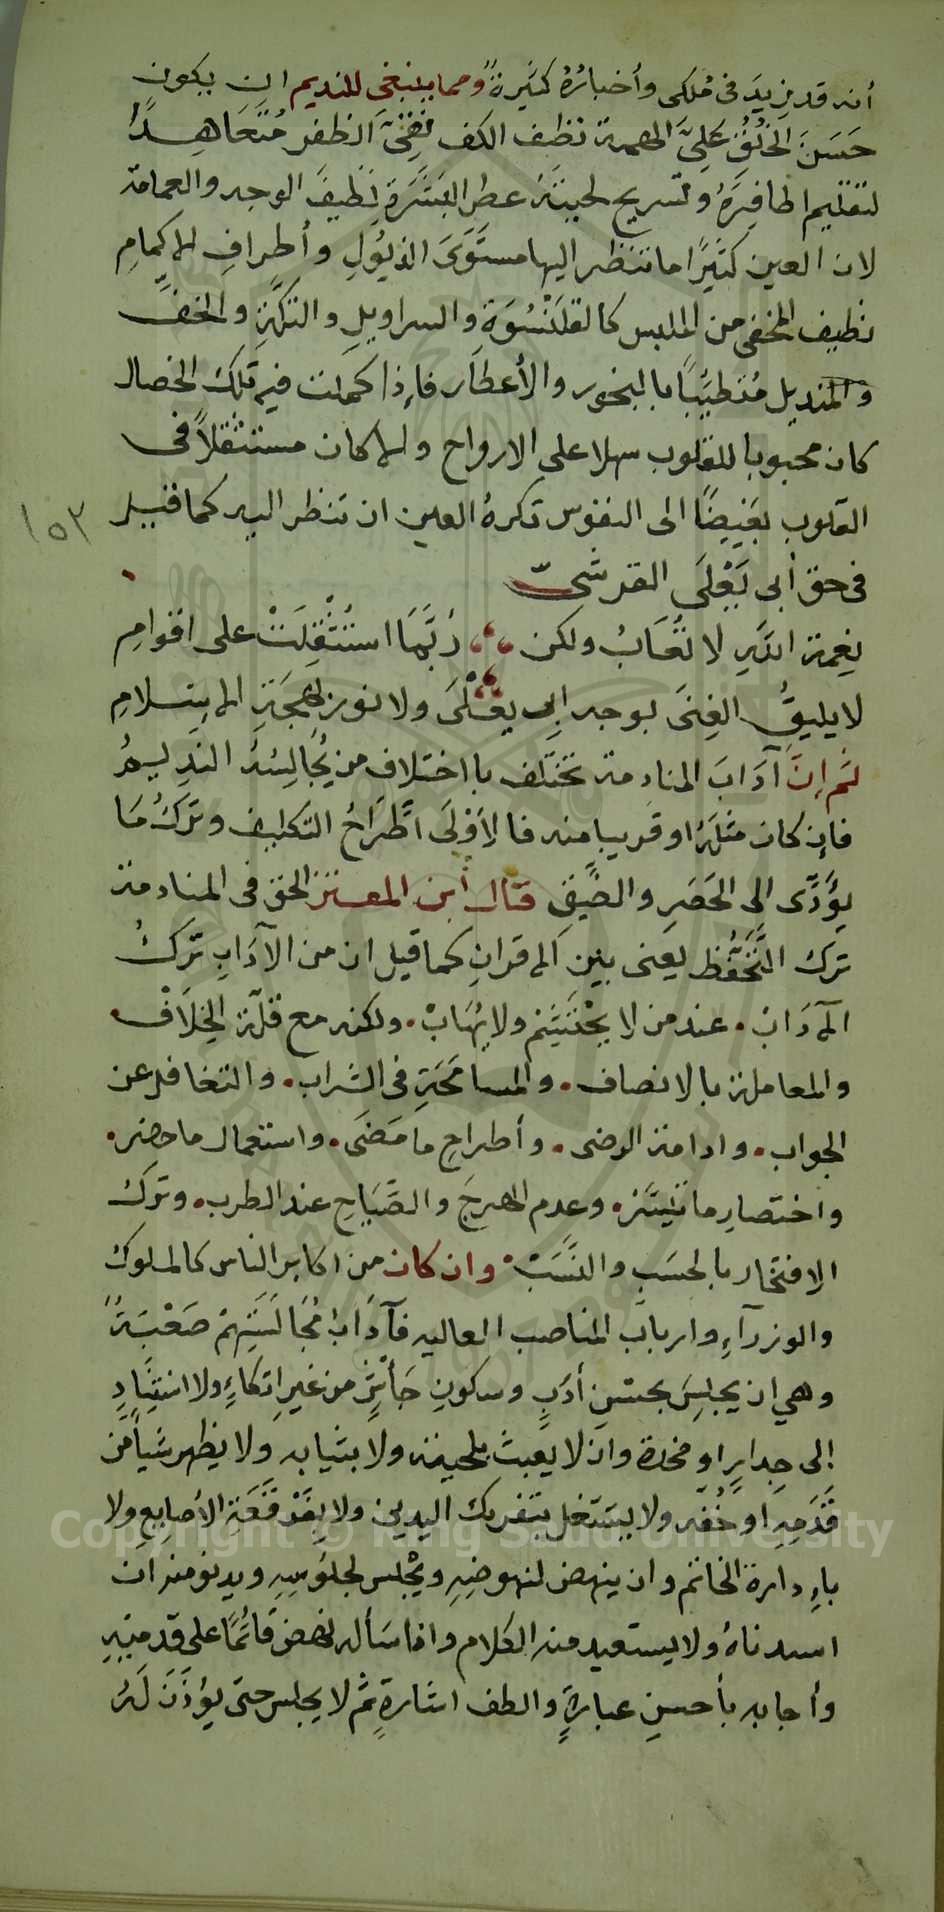 أنه قد زيد في ملكي وأخباره كثيرة ومما ينبغي للنديم ان يكون
حَسَنَ الخُلُقِ عَلِيَّ الهمة نظيف الكف نقيَّ الظفر مُتَعَاهِدًا
لتقليم اظافِرَهُ وتسريح لحيته عطر البَشَرَةِ نظيفَ الوجه والعمامة
لان العين كثيرًا ما تنظر اليها مستَوَى الذيُولِ وأطرافِ الاكمامِ
نظيف المخفي من الملبس كالقلَنْسُوَةِ والسراويلِ والتكّةِ والخفّ
والمنديل مُتطيّبًا بالبخور والأعطار فإذا كملت فيه تلك الخصال
كان محبوبا للقلوب سهلا على الارواح والا كان مستثقلاً في
القلوب بغيضًا الى النفوس تكرهُ العين ان تنظر اليه كما قيل
١٥٣
في حق أبي يَعْلَى القرشيّ
نِعمة اللهِ لا تُعَابُ ولكن رُبَّمَا استُثْقِلَتْ على اقوامِ
لا يليقُ الغِنَى بوجه ابي يعْلَى ولا نور بهجَةِ الاسلامِ
ثم إنَّ آدَابَ المنادمة تختلف باختلاف من يُجالِسُهُ النديم
فإن كان مثلَهُ او قريبا منه فالأَوْلَى اطِّرَاحُ التكليف وتَركُ مَا
يؤَدّى الى الحَصَرِ والضَيقِ قال أبن المعتز الحق في المنادمة
ترك التَّحَفُّظ يعني بين الاقرانِ كما قيل ان من الآدَابِ تَركَ
الآدَابْ عند من لا يحْتَشِم ولا يَهَابْ ولكنه مع قلّة الخِلَافْ
والمعاملة بالانصاف والمسامَحَةِ في الشراب والتغافل عن
الجواب وادامة الرضى وأطراحِ ما مَضَى واستعمال ما حضر
واختصارِ ما تَيَسَّر وعدم الهرجَ والصِّيَاحِ عند الطرب وتركِ
الافتخار بالحسَبِ والنسَبْ وان كان من اكابر الناس كالملوك
والوزرآءِ وارباب المناصب العاليه فآدَابُ مُجَالَسَتِهِمْ صَعْبَةٌ
وهي ان يجلِسَ بحسْنِ أدَبٍ وسكونِ جَأْشٍ من غير اتكاءٍ ولا استِنَادٍ
إلى جِدارٍ او مخدة وان لا يعبثَ بلحيته ولا بثيابه ولا يظهر شيأً من
قَدَمِهِ اوخُفّه ولا يشتغل بتفريك اليدين ولا بِفَرْقَعَةِ الأصابعِ ولا
بإدارة الخاتم وان ينهض لنهوضِهِ ويجْلس لجلُوسِهِ ويدنو منه ان
استدناهُ ولا يستعيد منه الكلام واذا سَأله نهض قائمًا على قدميْهِ
وأجابه بأحسنِ عبارةٍ والطف اشارةٍ ثم لا يجلس حتى يؤذَنَ لَهُ
Copyright © King Saud University